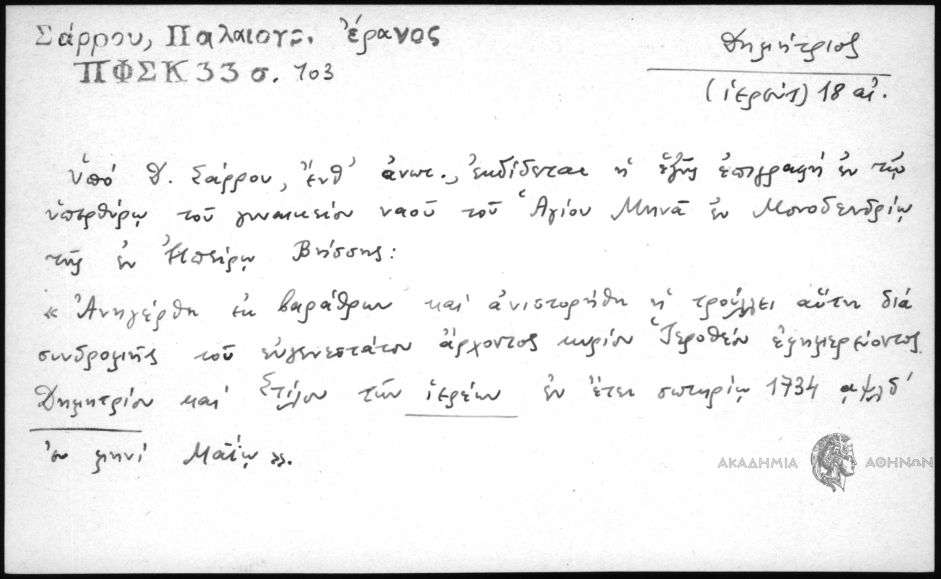 Σάρρου, Παλαιογρ. ἔρανος
ΠΦΣΚ 33 σ. 103
Δημήτριος
(ἱερεύς) 18 αἰ.
Ὑπό Δ. Σάρρου, ἔνθ' ἀνωτ., ἐκδίδεται ἡ ἑξῆς ἐπιγραφή ἐν τῷ
ὑπερθύρῳ τοῦ γυναικείου ναοῦ τοῦ Ἁγίου Μηνᾶ ἐν Μονοδενδρίῳ
τῆς ἐν Ἠπείρῳ Βήσσης:
« Ἀνηγέρθη ἐκ βαράθρων καί ἀνιστορήθη ἡ τροῦλλει αὔτη διά
συνδρομῆς τοῦ εὐγενεστάτου ἄρχοντος κυρίου Ἱεροθέου ἐφημερεύοντος
Δημητρίου καί Στίλου τῶν ἱερέων ἐν ἔτει σωτηρίῳ 1734 αψλδ'
ἐν μηνί Μαΐῳ ».
ΑΚΑΔΗΜΙΑ ΑΘΗΝΩΝ